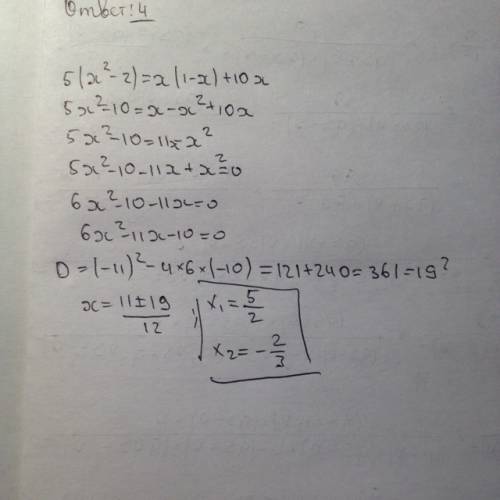 Ответ: 4
5(x²-2)=x(1-x)+10x
5x²-10=x-x²+10x
5x²-10=11x-x²
5x²-10-11x+x²=0
6x²-10-11x=0
6x²-11x-10=0
D=(-11)²-4×6×(-10)=121+240=361=19²
x=\frac{11±19}{12}; x₁=\frac{5}{2}
x₂=-\frac{2}{3}